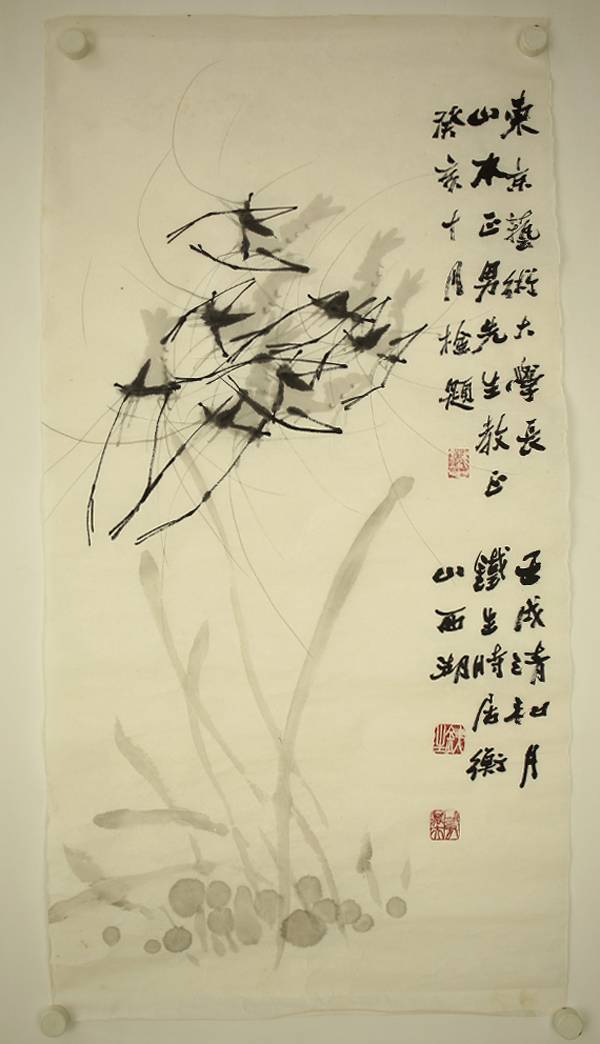 東京藝術大學長
山本正男先生教正
癸亥十月檢題
壬戌清和月
鐵生時居衡
山西湖